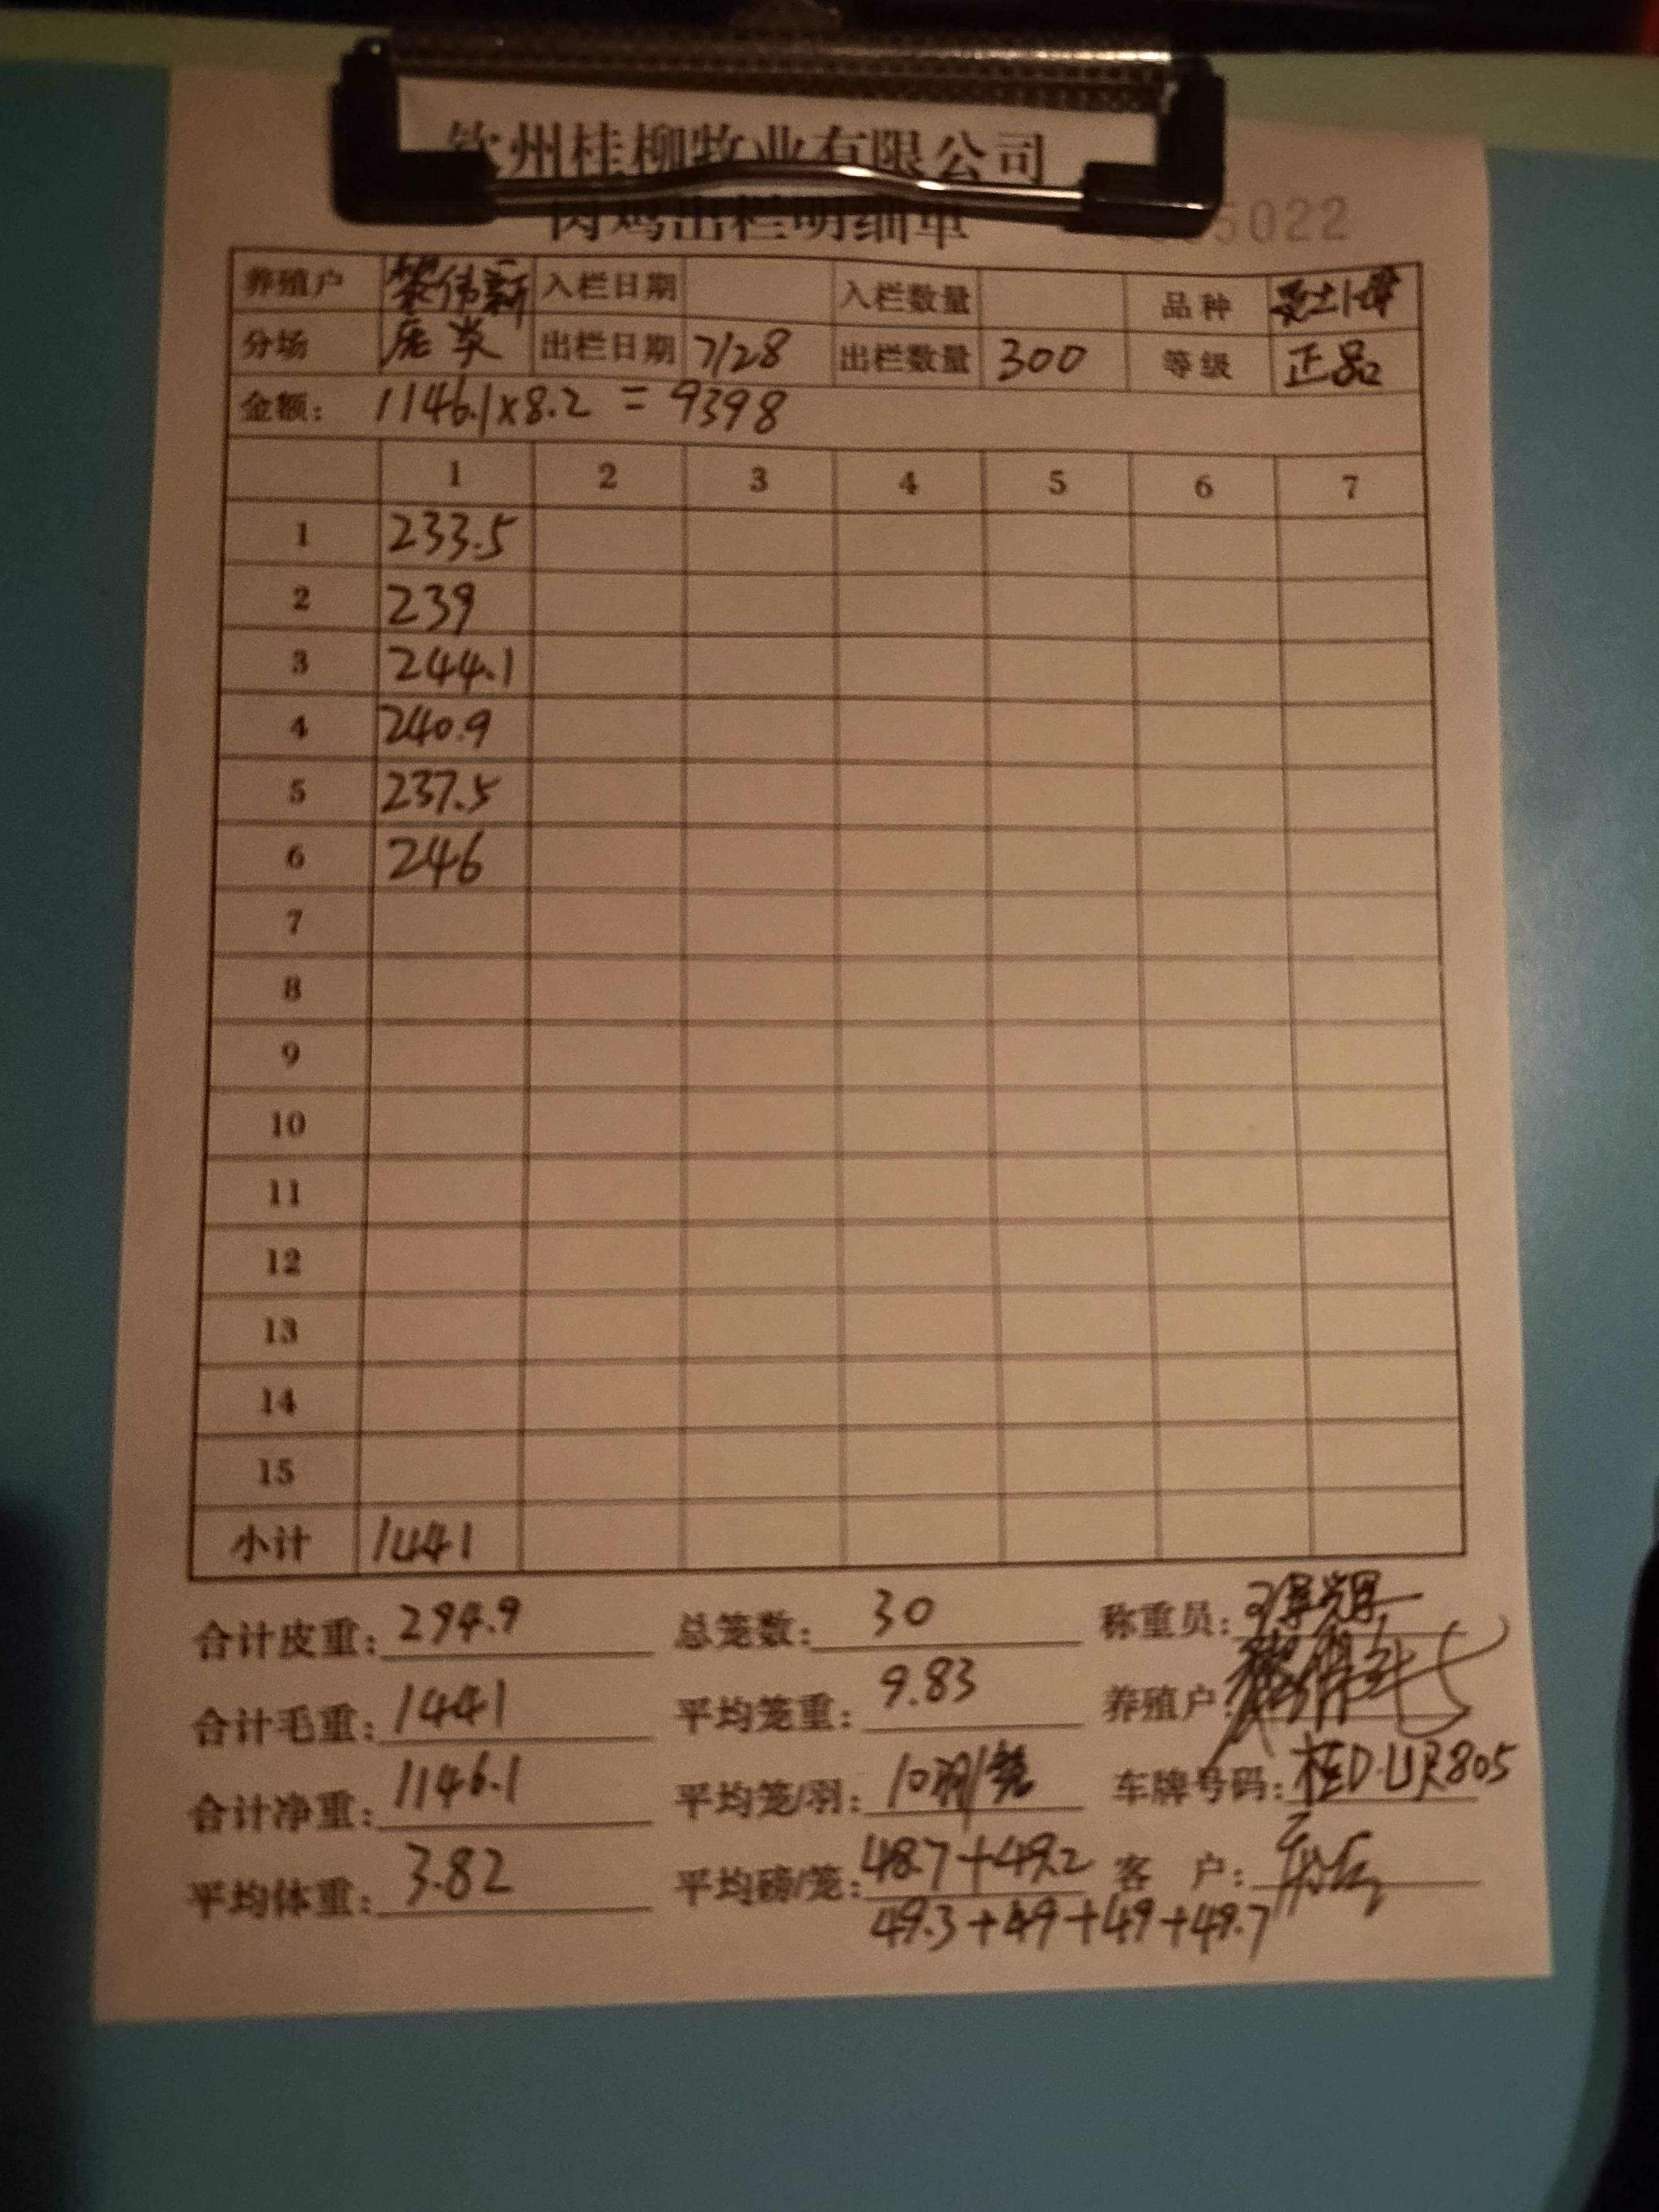 钦州桂柳牧业有限公司
肉鸡出栏明细单 5022
养殖户 黎伟新 入栏日期 入栏数量 品种
分场 出栏日期 7/28 出栏数量 300 等级 正品
金额: 1146.1×8.2 = 9398
1 2 3 4 5 6 7
1 233.5
2 239
3 244.1
4 240.9
5 237.5
6 246
7
8
9
10
11
12
13
14
15
小计 1441
合计皮重: 294.9 总笼数: 30 称重员:
合计毛重: 1441 平均笼重: 9.83 养殖户:
合计净重: 1146.1 平均笼/羽: 10羽/笼 车牌号码: 桂D·UR805
平均体重: 3.82 平均磅/笼: 48.7+49.2 客 户:
49.3+49+49+49.7